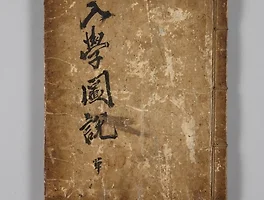 入學圖說